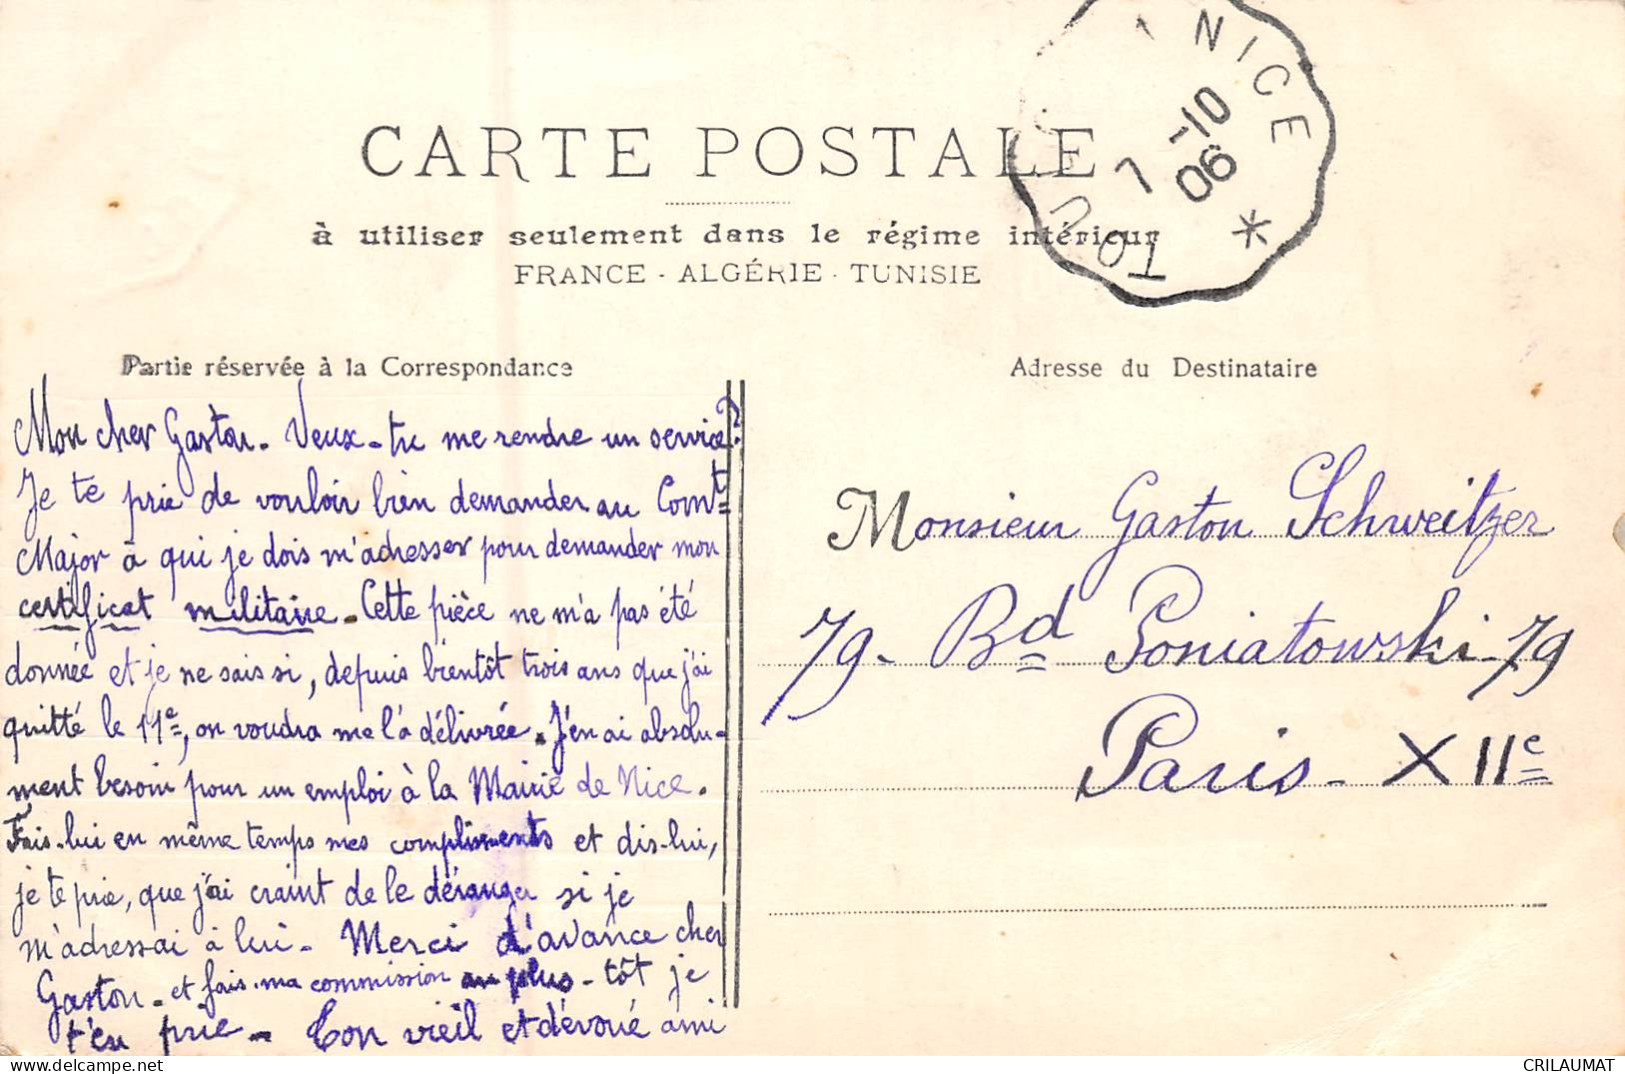 CARTE POSTALE
à utiliser seulement dans le régime intérieur
FRANCE - ALGÉRIE - TUNISIE
TOU A NICE
7 -10
06
*
Partie réservée à la Correspondance
Mon cher Gaston. Veux-tu me rendre un service?
Je te prie de vouloir bien demander au Comt
Major à qui je dois m'adresser pour demander mon
certificat militaire. Cette pièce ne m'a pas été
donnée et je ne sais si, depuis bientôt trois ans que j'ai
quitté le 11e, on voudra me l'a délivrée. J'en ai absolu-
ment besoin pour un emploi à la Mairie de Nice.
Fais-lui en même temps mes compliments et dis-lui,
je te prie, que j'ai craint de le déranger si je
m'adressai à lui. Merci d'avance cher
Gaston. et fais ma commission au plus-tôt je
t'en prie. Ton vieil et dévoué ami
Adresse du Destinataire
Monsieur Gaston Schweitzer
79 - Bd Poniatowski - 79
Paris - XIIe
CRILAUMAT